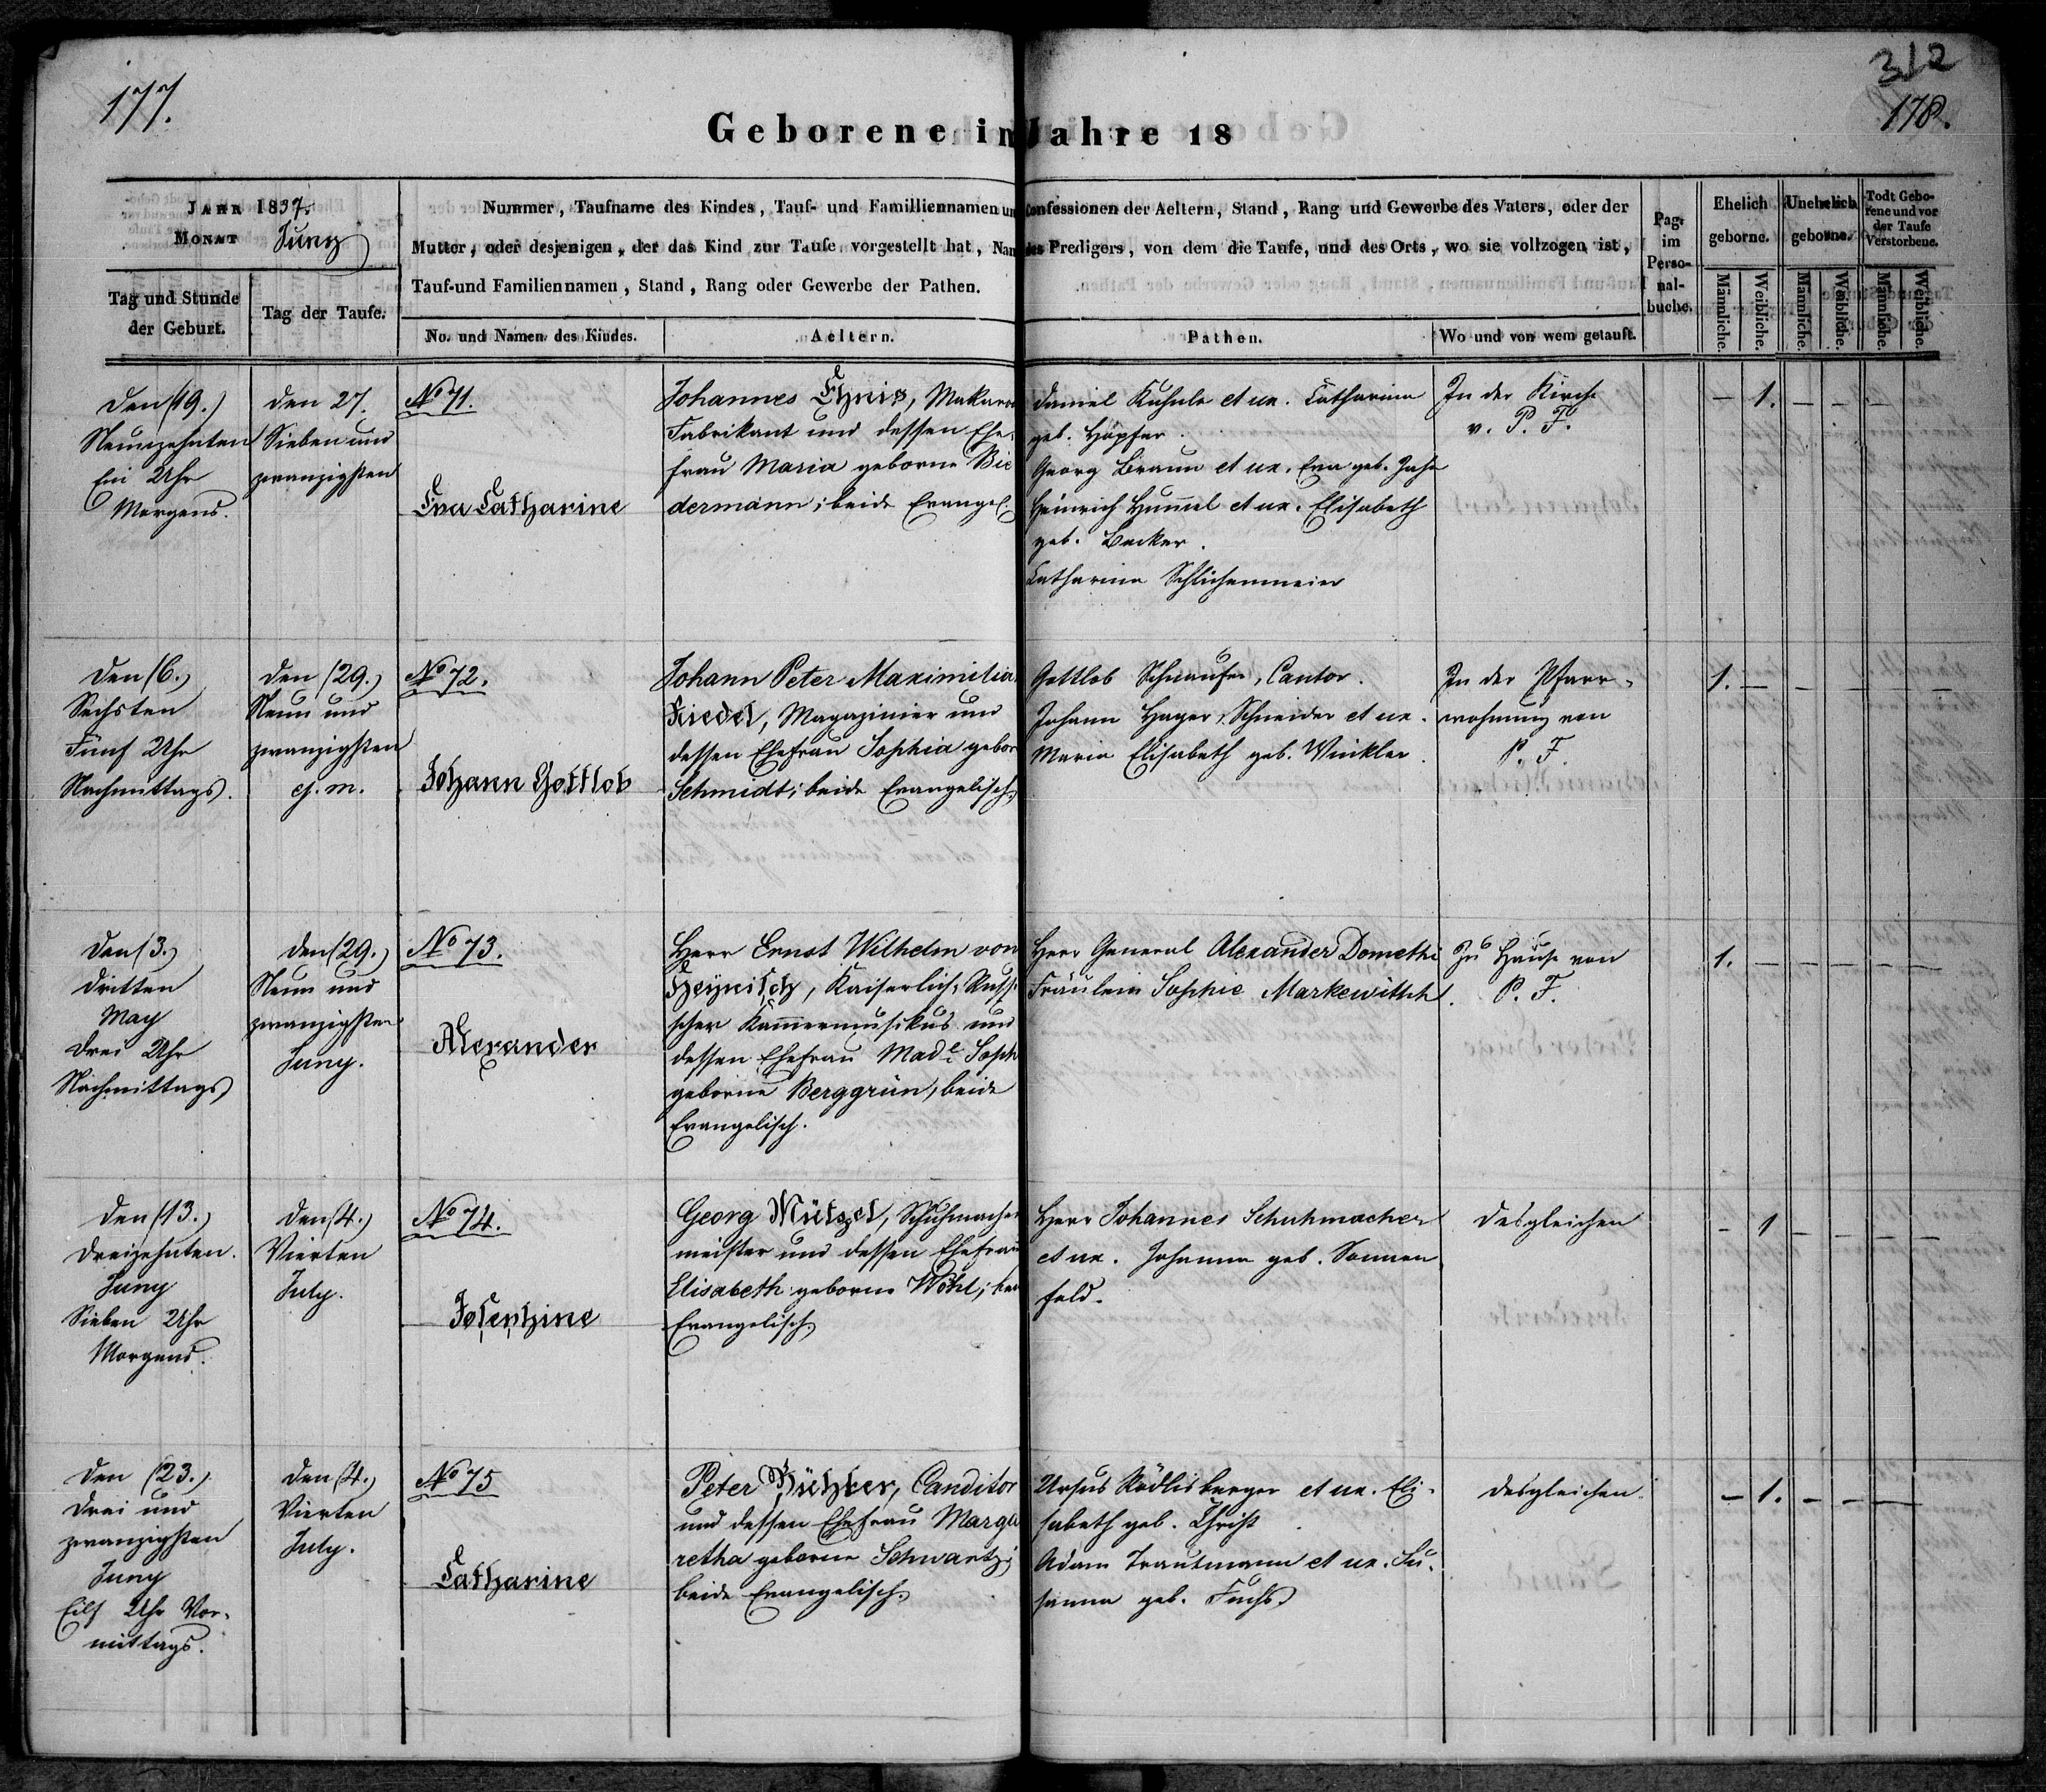 177.
312
178.
Geborene im Jahre 18
JAHR 1837.
MONAT Juny
Nummer, Taufname des Kindes, Tauf- und Familliennamen und Confessionen der Aeltern, Stand, Rang und Gewerbe des Vaters, oder der
Mutter, oder desjenigen, der das Kind zur Taufe vorgestellt hat, Name des Predigers, von dem die Taufe, und des Orts, wo sie vollzogen ist,
Tauf-und Familiennamen, Stand, Rang oder Gewerbe der Pathen.
Tag und Stunde
der Geburt.
Tag der Taufe.
No. und Namen des Kindes.
Aeltern.
Pathen.
Wo und von wem getauft.
Pag.
im
Perso-
nal-
buche.
Ehelich
geborne.
Unehelich
geborne.
Todt Gebo-
rene und vor
der Taufe
Verstorbene.
Männliche.
Weibliche.
Männliche.
Weibliche.
Männliche.
Weibliche.
Den (19.)
Neunzehnten
Ein Uhr
Morgens.
den 27.
Sieben und
zwanzigsten
No 71.
Eva Catharine
Johannes Ehnis, Makaron
Fabrikant und dessen Ehe-
frau Maria geborne Bie
dermann; beide Evangel.
Daniel Kuhnle et ux. Catharina
geb. Hopfer.
Georg Braun et ux. Eva geb. Jahn
Heinrich Hummel et ux. Elisabeth
geb. Becker.
Catharina Schlichenmeier
In der Kirche
v. P. F.
– 1. – – –
Den (6.)
Sechsten
Fünf Uhr
Nachmittags.
den (29.)
Neun und
zwanzigsten
ej. m.
No 72.
Johann Gottlob
Johann Peter Maximilia
Riedel, Magazinier und
dessen Ehefrau Sophia gebor
Schmidt; beide Evangelisch.
Gottlob Schnaufer, Cantor.
Johann Hager, Schneider et ux.
Maria Elisabeth geb. Winkler.
In der Pfarr-
wohnung von
P. F.
1. – – – – –
Den (3.)
Dritten
May
Drei Uhr
Nachmittags
den (29.)
Neun und
zwanzigsten
Juny.
No 73.
Alexander
Herr Ernst Wilhelm von
Heynitsch, Kaiserlich-Russi
scher Kammermusikus und
dessen Ehefrau Made Soph
geborne Berggrün, beide
Evangelisch.
Herr General Alexander Domethi
Fräulein Sophie Markewitsch.
Zu Hause von
P. F.
1. – – – – –
Den (13.)
Dreizehnten.
Juny
Sieben Uhr
Morgens.
den (4.)
Vierten
July.
No 74.
Josephine
Georg Mützel, Schuhmacher
meister und dessen Ehefrau
Elisabeth geborne Wöhl; bei
Evangelisch.
Herr Johannes Schuhmacher
et ux. Johanna geb. Sonnen
feld.
desgleichen
– 1 – – – –
Den (23.)
Drei und
zwanzigsten
Juny
Eilf Uhr Vor-
mittags.
den (4.)
Vierten
July.
No 75
Catharine
Peter Conditor
und dessen Ehefrau Marga
retha geborne Schwartz;
beide Evangelisch.
Ursus Rödlisberger et ux. Eli-
sabeth geb. Christ
Adam Trautmann et ux. Su-
sanna geb. Fuchs.
desgleichen.
– 1. – – –